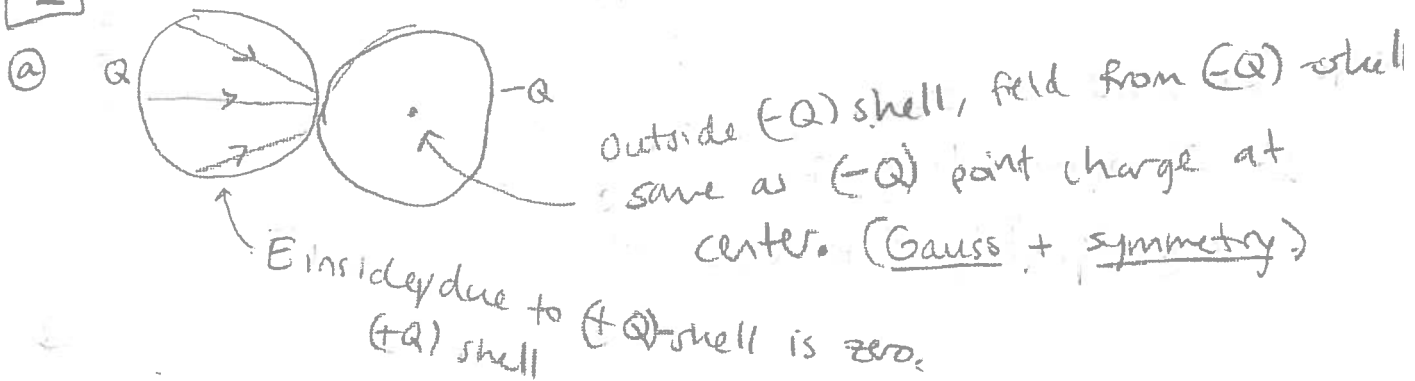 ⓐ Q -Q
Outside (-Q) shell, field from (-Q) shell
same as (-Q) point charge at
center. (Gauss + symmetry)
E inside, due to (+Q)-shell is zero.
(+Q) shell